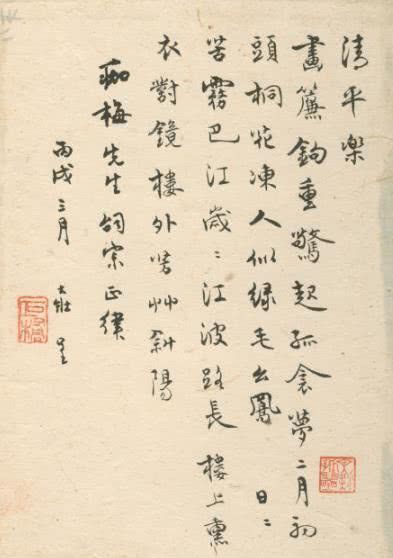 清平樂
畫簾鉤重驚起孤衾夢二月初
頭桐花凍人似緑毛幺鳳　日〻
苦霧巴江歲〻江波路長　樓上熏
衣對鏡樓外芳艸斜陽
梅先生詞宗正律
丙戌三月　大壯　呈